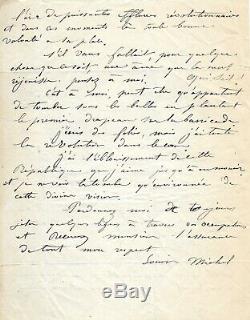 l'ère de puissantes effluves révolutionnaires
et dans ces moments la seule bonne
volonté a sa place.
S'il vous fallait pour quelque
chose que ce soit une âme que la mort
réjouisse pensez à moi.
Qui sait !
Cet à moi peut être qu'appartient
de tomber sous les balles en plantant
le premier drapeau sur la barricade.
Je dis des folies, mais j'ai toute
la révolution dans le cœur.
J'ai l'éblouissement de cette
République que j'aime jusqu'à en mourir
et je ne vois la tombe qu'environnée de
cette divine vision.
Pardonnez moi de toujours
jeter quelques lignes à travers vos occupations
et recevez monsieur l'assurance
de tout mon respect
Louise Michel